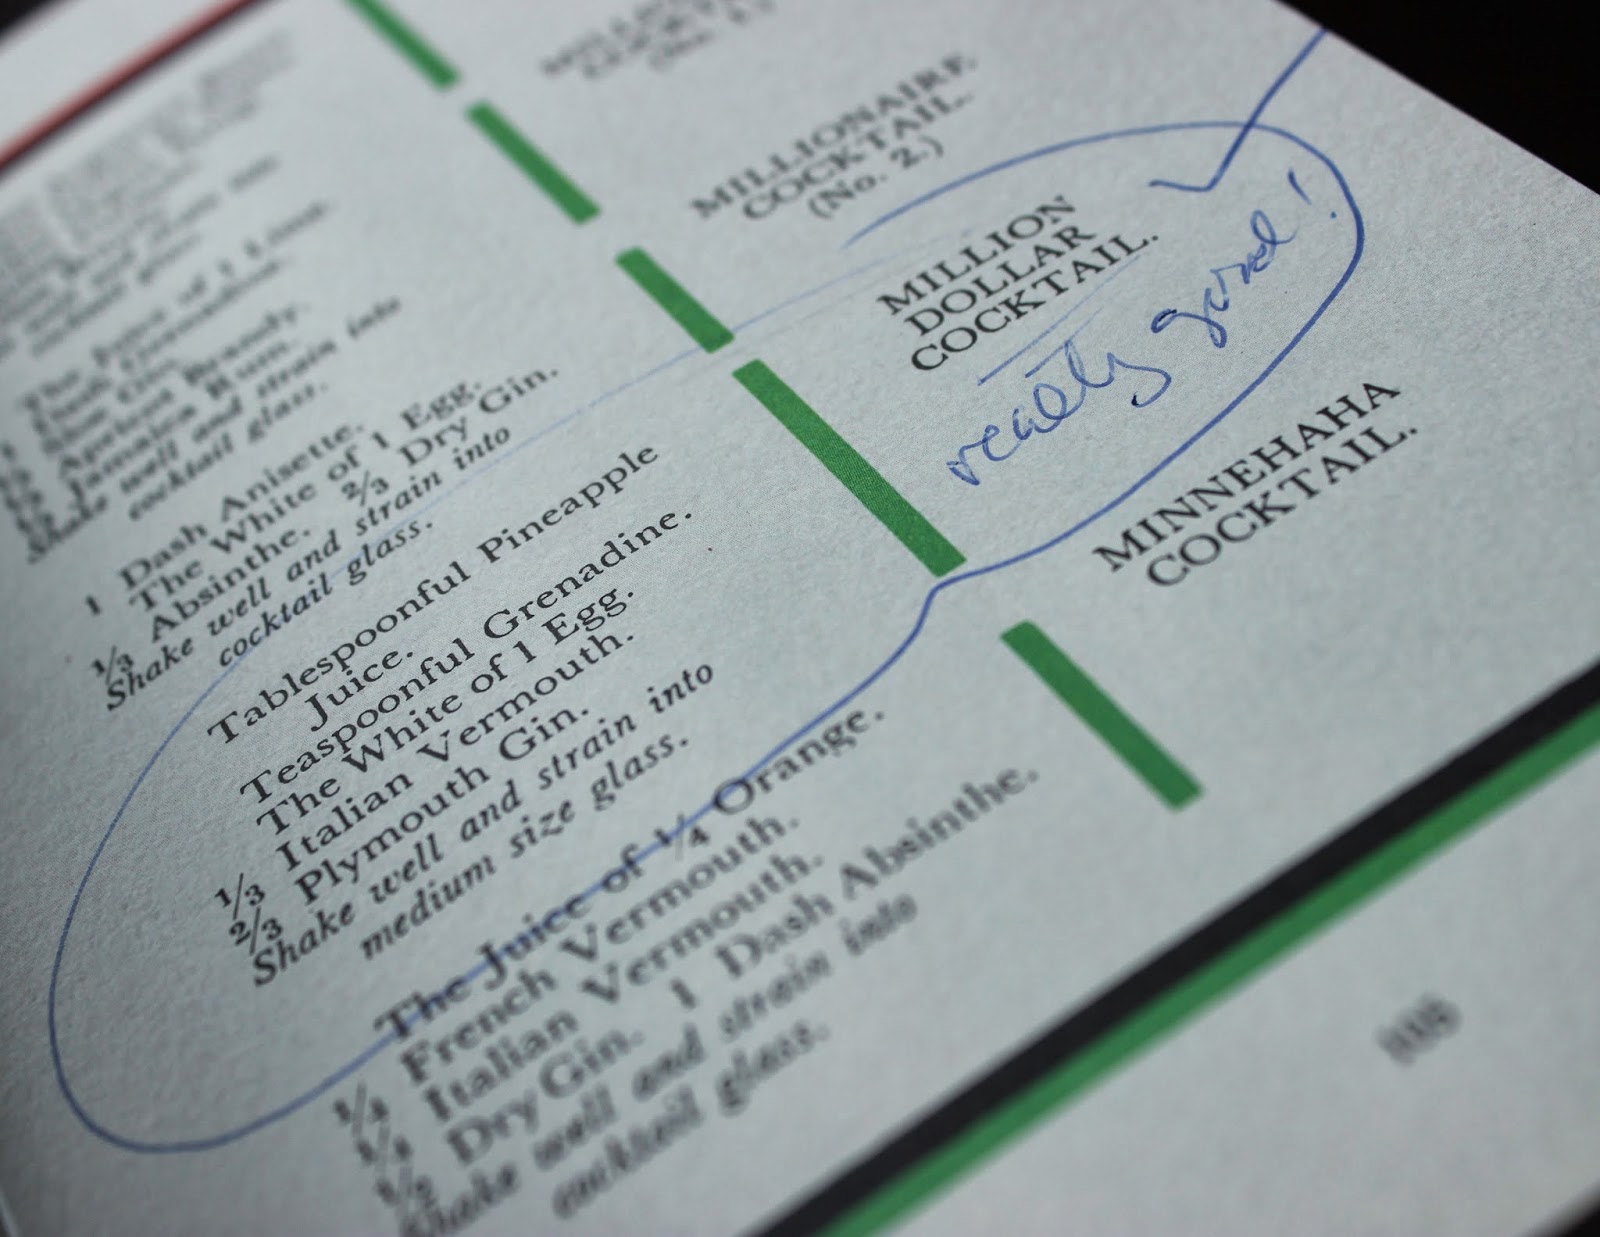 MILLIONAIRE
COCKTAIL.
(No. 2.)
The Juice of 1 Lime.
Jamaica Rum.
Shake well and strain into
cocktail glass.
MILLION
DOLLAR
COCKTAIL.
really good!
1 Dash Anisette.
The White of 1 Egg.
1/3 Absinthe. 2/3 Dry Gin.
Shake well and strain into
cocktail glass.
MINNEHAHA
COCKTAIL.
Tablespoonful Pineapple
Juice.
Teaspoonful Grenadine.
The White of 1 Egg.
1/3 Italian Vermouth.
2/3 Plymouth Gin.
Shake well and strain into
medium size glass.
The Juice of 1/4 Orange.
1/4 French Vermouth.
1/4 Italian Vermouth.
1/2 Dry Gin. 1 Dash Absinthe.
Shake well and strain into
cocktail glass.
108